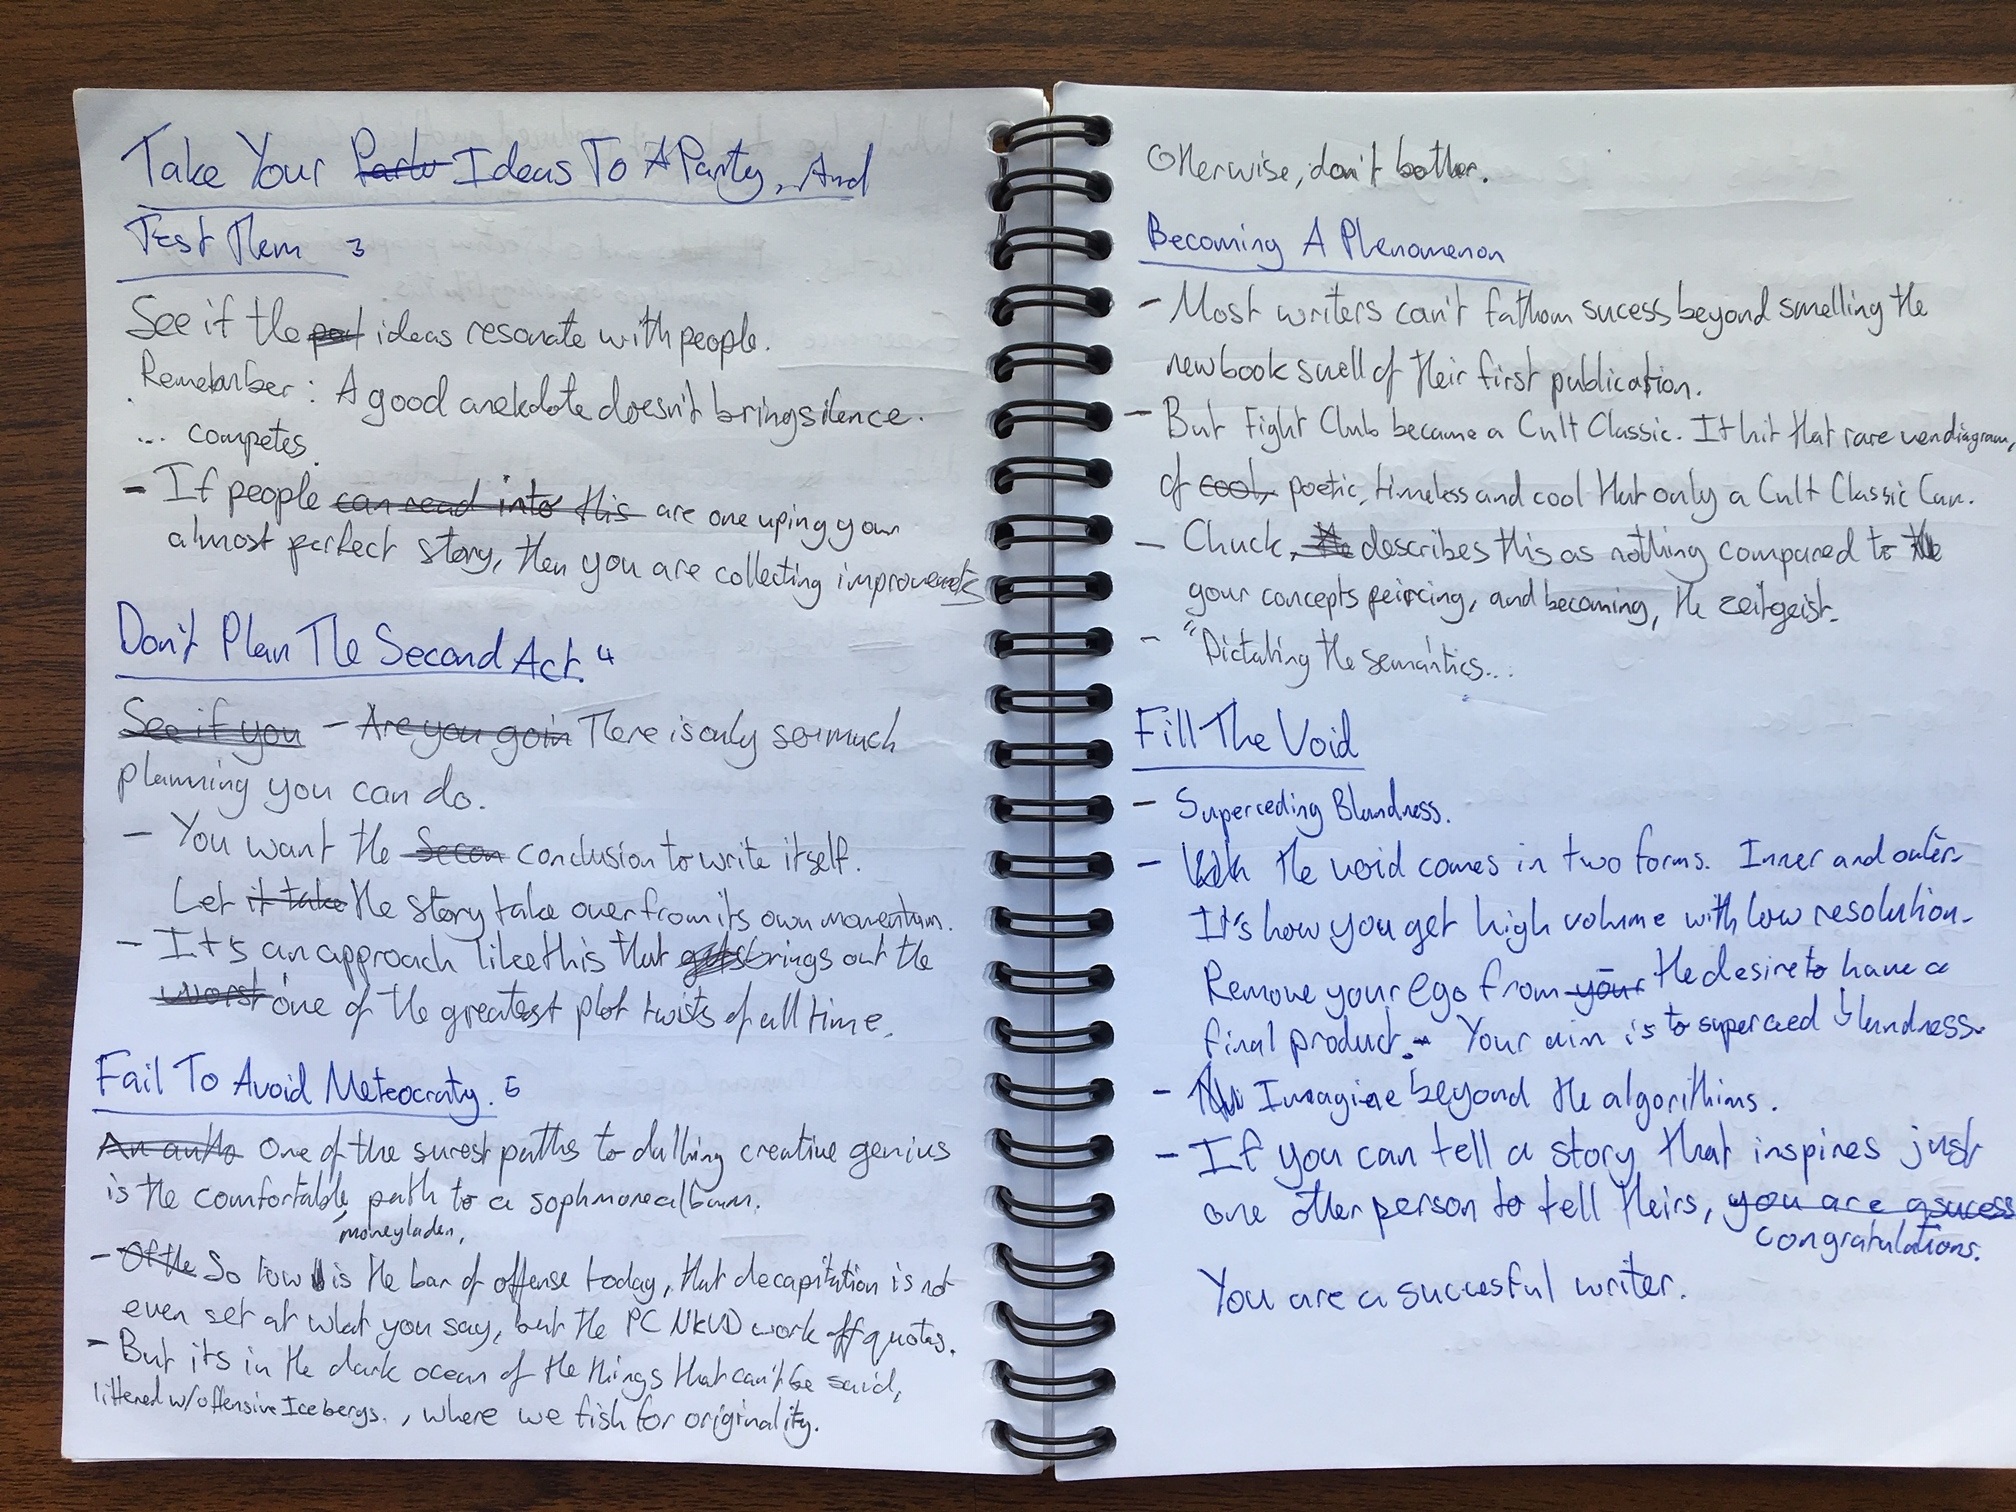 Take Your Party Ideas To A Party, And
Test Them 3
See if the ideas resonate with people.
Rememberber: A good anekdote doesn't bring silence.
... competes.
- If people can read into this are one uping your
almost perfect story, then you are collecting improvements
Don't Plan The Second Act. 4
See if you - Are you goin There is only so much
planning you can do.
- You want the Secon conclusion to write itself.
Let it take the story take over from its own momentum.
- It's an approach like this that brings out the
worst one of the greatest plot twists of all time.
Fail To Avoid Meteocraty. 5
An autho One of the surest paths to dulling creative genius
is the comfortable, path to a sophmore album.
moneyladen,
- Of the So low is the bar of offense today, that decapitation is not
even set at what you say, but the PC NKVD work off quotas.
- But its in the dark ocean of the things that can't be said,
littered w/offensive Icebergs., where we fish for originality.
Otherwise, don't bother.
Becoming A Phenomenon
- Most writers can't fathom sucess beyond smelling the
new book smell of their first publication.
- But Fight Club became a Cult Classic. It hit that rare vendiagram,
of cool, poetic, timeless and cool that only a Cult Classic Can.
- Chuck, describes this as nothing compared to the
your concepts peircing, and becoming, the zeitgeist.
- "Dictating the semantics...
Fill The Void
- Superceding Blandness.
- the void comes in two forms. Inner and outer.
It's how you get high volume with low resolution.
Remove your ego from your the desire to have a
final product. - Your aim is to superceed blandness.
- Imagine beyond the algorithims.
- If you can tell a story that inspires just
one other person to tell theirs, you are a sucess
congratulations.
You are a succesful writer.